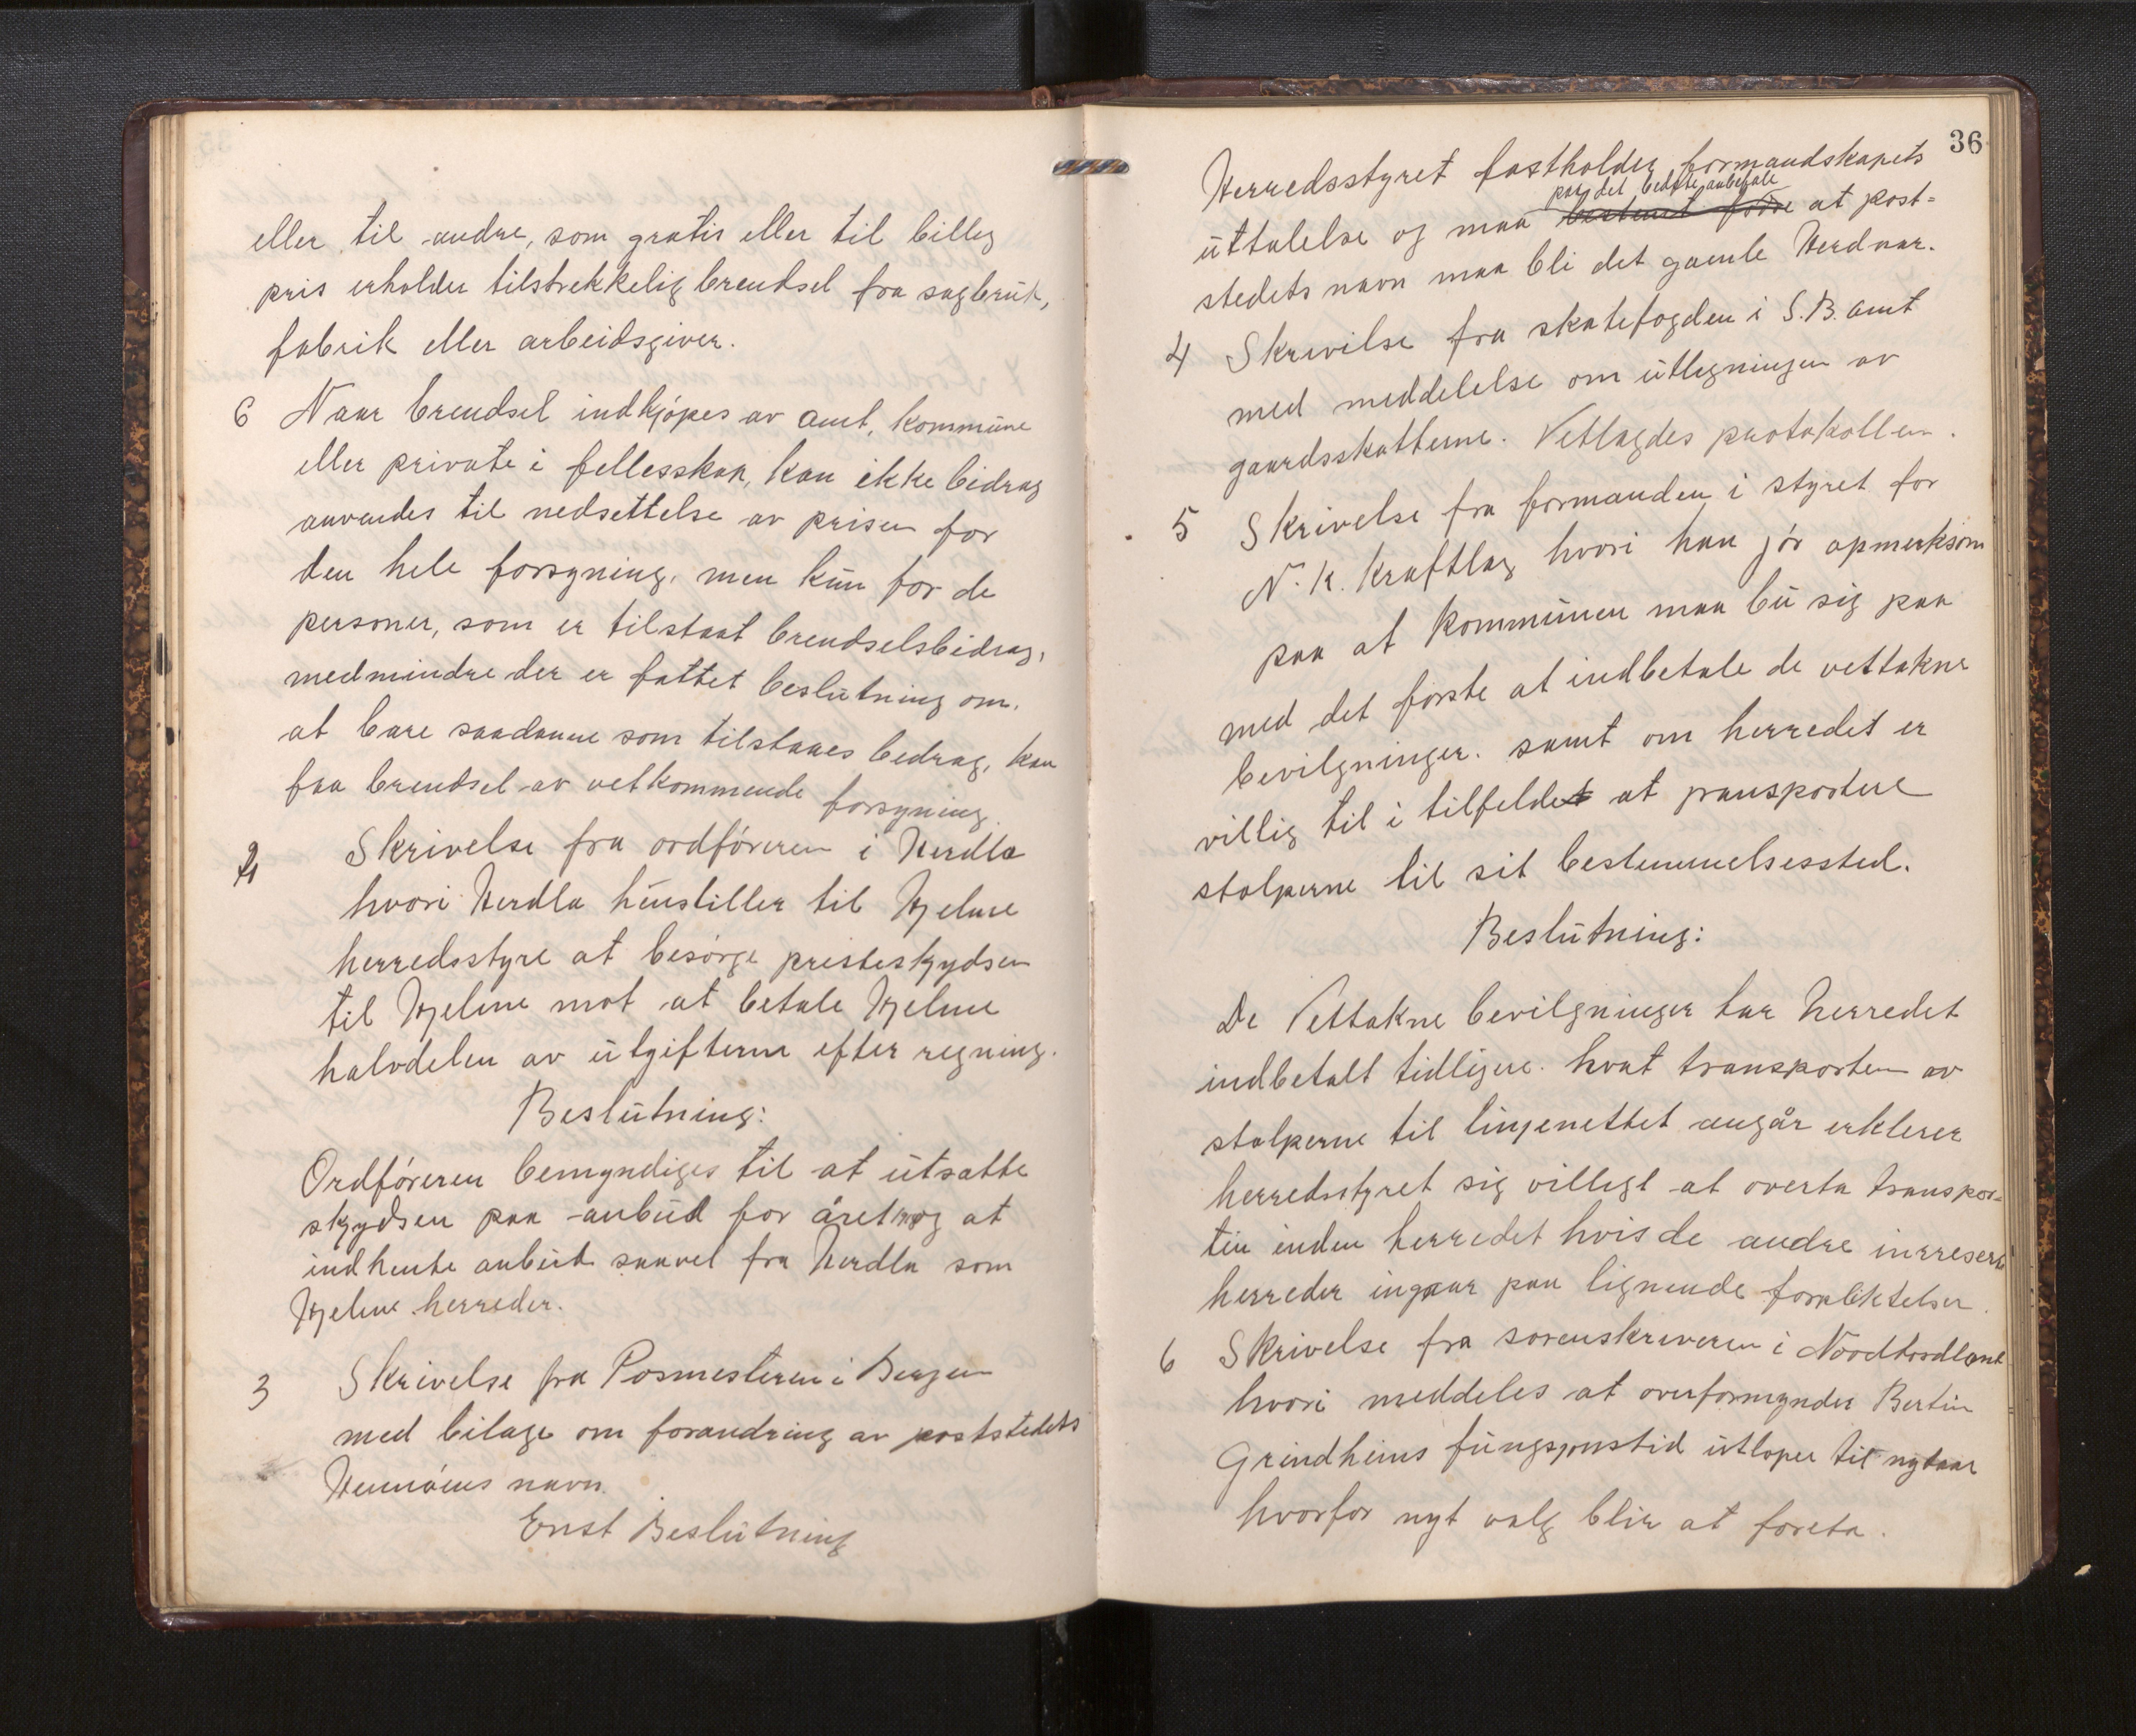 eller til andre, som gratis eller til billig
pris erholder tilstrekkelig brendsel fra sagbruk,
fabrik eller arbeidsgiver.
6 Naar brendsel indkjøpes av amt, kommune
eller private i fellesskap, kan ikke bidrag
anvendes til nedsettelse av prisen for
den hele forsyning, men kun for de
personer, som er tilstaat brendselsbidrag,
medmindre der er fattet beslutning om,
at bare saadanne som tilstaaes bedrag, kan
faa brendsel av vetkommende forsyning.
2 Skrivelse fra ordføreren i Herdla
hvori Herdla henstiller til Hjelme
herredsstyre at besørge presteskydsen
til Hjelme mot at betale Hjelme
halvdelen av utgifterne efter regning.
Beslutning:
Ordføreren bemyndiges til at utsatte
skydsen paa anbud for året og at
indhente anbud saavel fra Herdla som
Hjelme herreder.
3 Skrivelse fra Posmesteren i Bergen
med bilage om forandring av poststedets
navn.
Enst Beslutning
36
Herredsstyret fastholder formandskapets
paa det bedste anbefale
uttalelse og maa at post-
stedets navn maa bli det gamle Hernar.
4 Skrivilse fra skatefogden i S.B. amt
med meddelelse om utlegningen av
gaardsskatterne. Vetlagdes protokollen.
5 Skrivelse fra formanden i styret for
N. K. Kraftlag hvori han jør opmerksom
paa at kommunen maa bu sig paa
med det første at indbetale de vettakne
bevilgninger. samt om herredet er
villig til i tilfelde at transportere
stolperne til sit bestemmelsessted.
Beslutning:
De Vettakne bevilgninger har herredet
indbetalt tidligere. hvat transporten av
stolperne til linjenettet angår erklerer
herredsstyret sig villigt at overta transpor-
ten inden herredet hvis de andre
herreder ingaar paa lignende forpliktelser.
6 Skrivelse fra sorenskriveren i Nordhordland
hvori meddeles at overformynder Bertin
Grindheims fungsjonstid utløper til nytaar
hvorfor nyt valg blir at foreta.